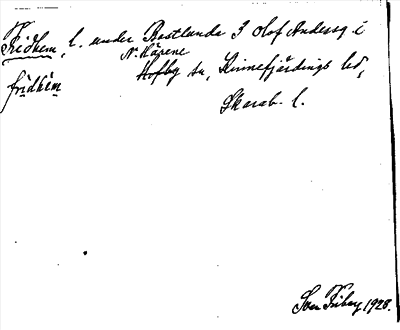 Fridhem, l. under Bostlanda 3 Olof Anderss. i
N. Härene
Hofby sn, Kinnefjärdings hd,
fridhem
Skarab. l.
Sven Friberg 1928.